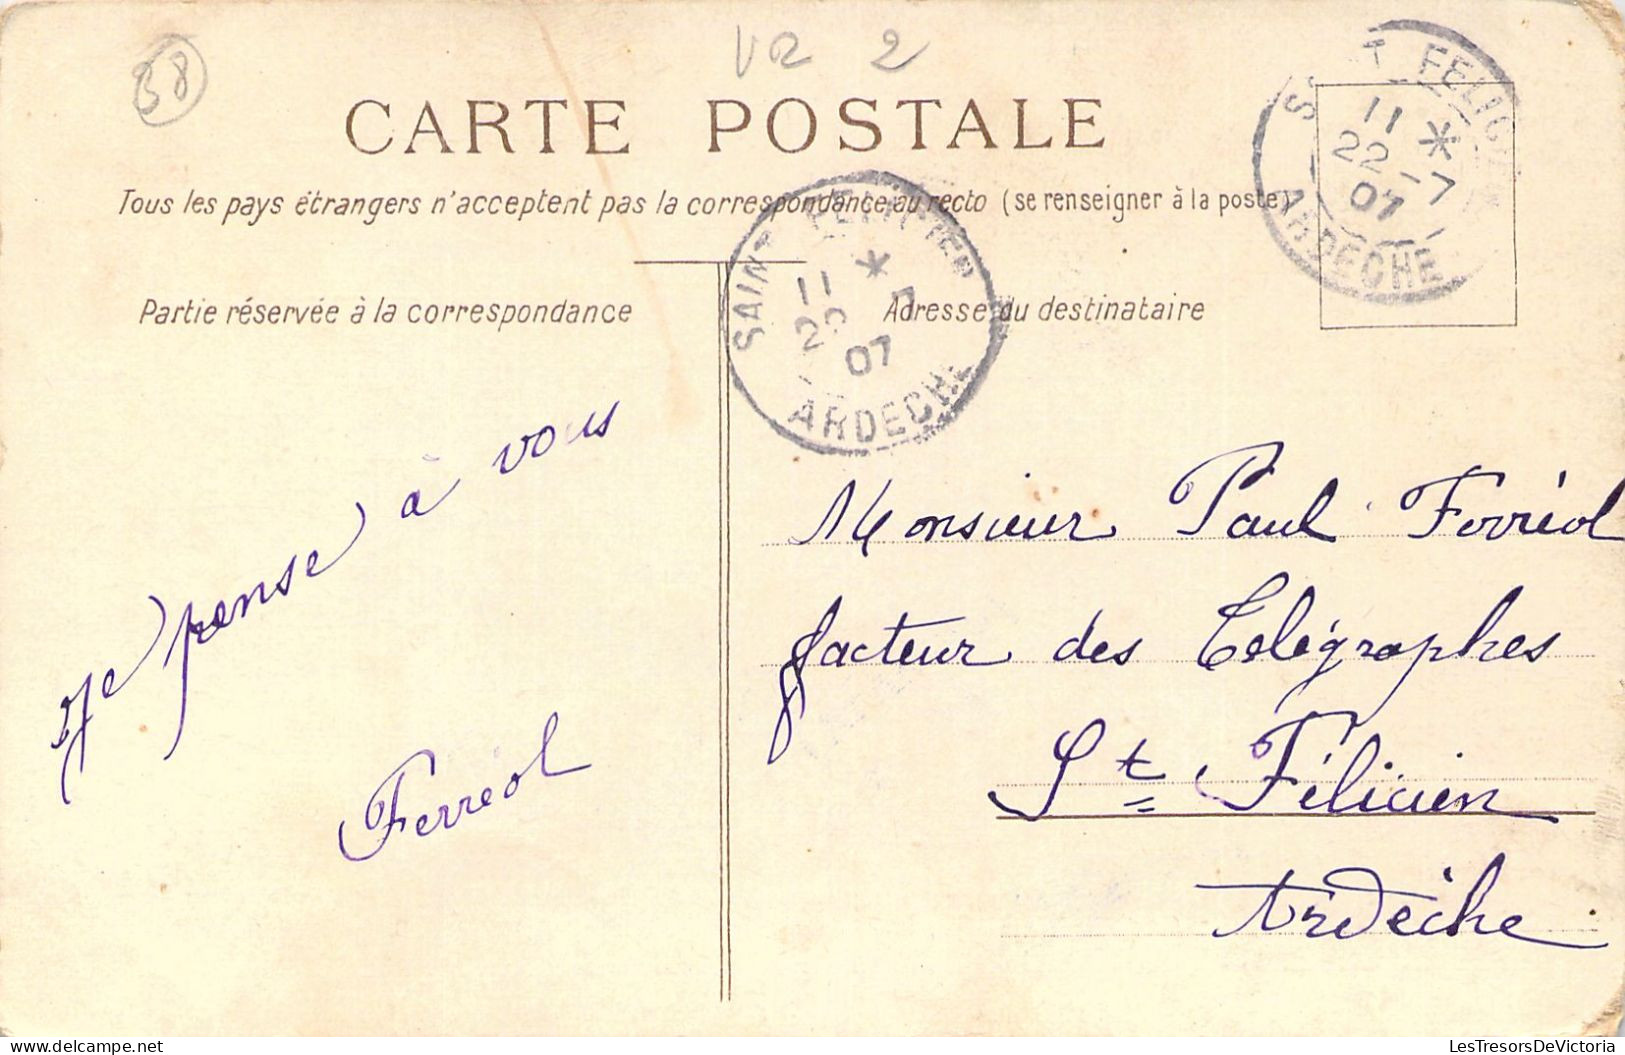 38
VR 2
CARTE POSTALE
Tous les pays étrangers n'acceptent pas la correspondance au recto (se renseigner à la poste)
SAINT FELICIEN
11 *
22 -7
07
ARDECHE
SAINT FELICIEN
11 *
22 7
07
ARDECHE
Partie réservée à la correspondance
Adresse du destinataire
Je pense à vous
Ferréol
Monsieur Paul Ferréol
facteur des Télégraphes
St Félicien
Ardèche
delcampe.net
LesTresorsDeVictoria